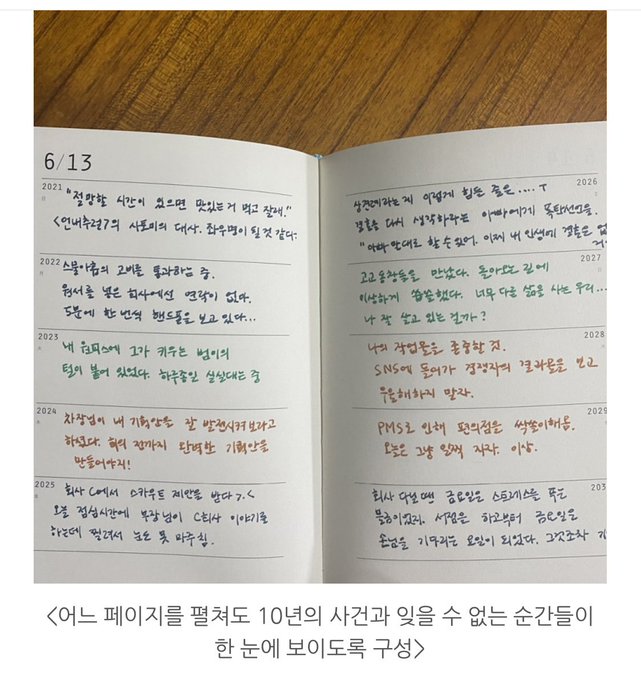 6/13
2021
"절망할 시간이 있으면 맛있는 거 먹고 잘래."
<언내추럴>의 사포미의 대사. 좌우명이 될 것 같다.
2022
스물아홉의 고비를 통과하는 중.
원서를 넣은 회사에선 연락이 없다.
5분에 한 번씩 핸드폰을 보고 있다...
2023
내 원피스에 그가 키우는 범이의
털이 붙어 있었다. 하루종일 실실대는 중
2024
차장님이 내 기획안을 잘 발전시켜보라고
하셨다. 회의 전까지 완벽한 기획안을
만들어야지!
2025
회사 C에서 스카우트 제안을 받다 >.<
오늘 점심시간에 부장님이 C회사 이야기를
하는데 찔려서 눈도 못 마주침.
2026
상견례라는 게 이렇게 힘든 줄은.... ㅜ
결혼을 다시 생각하라는 아빠에게 폭탄선언을.
"아빠 맘대로 할 수 없어. 이제 내 인생에 결혼은 없
2027
고교동창들을 만났다. 돌아오는 길에
이상하게 씁쓸했다. 너무 다른 삶을 사는 우리...
나 잘 살고 있는 걸까?
2028
나의 작업물을 존중할 것.
SNS에 들어가 경쟁자의 결과물을 보고
우울해하지 말자.
2029
PMS로 인해 편의점을 싹쓸이해옴.
오늘은 그냥 일찍 자자. 이상.
203
회사 다닐 땐 금요일은 스트레스를 푸는
불금이었지. 서점을 하고부터 금요일은
손님을 기다리는 요일이 되었다. 그것조차
<어느 페이지를 펼쳐도 10년의 사건과 잊을 수 없는 순간들이
한 눈에 보이도록 구성>